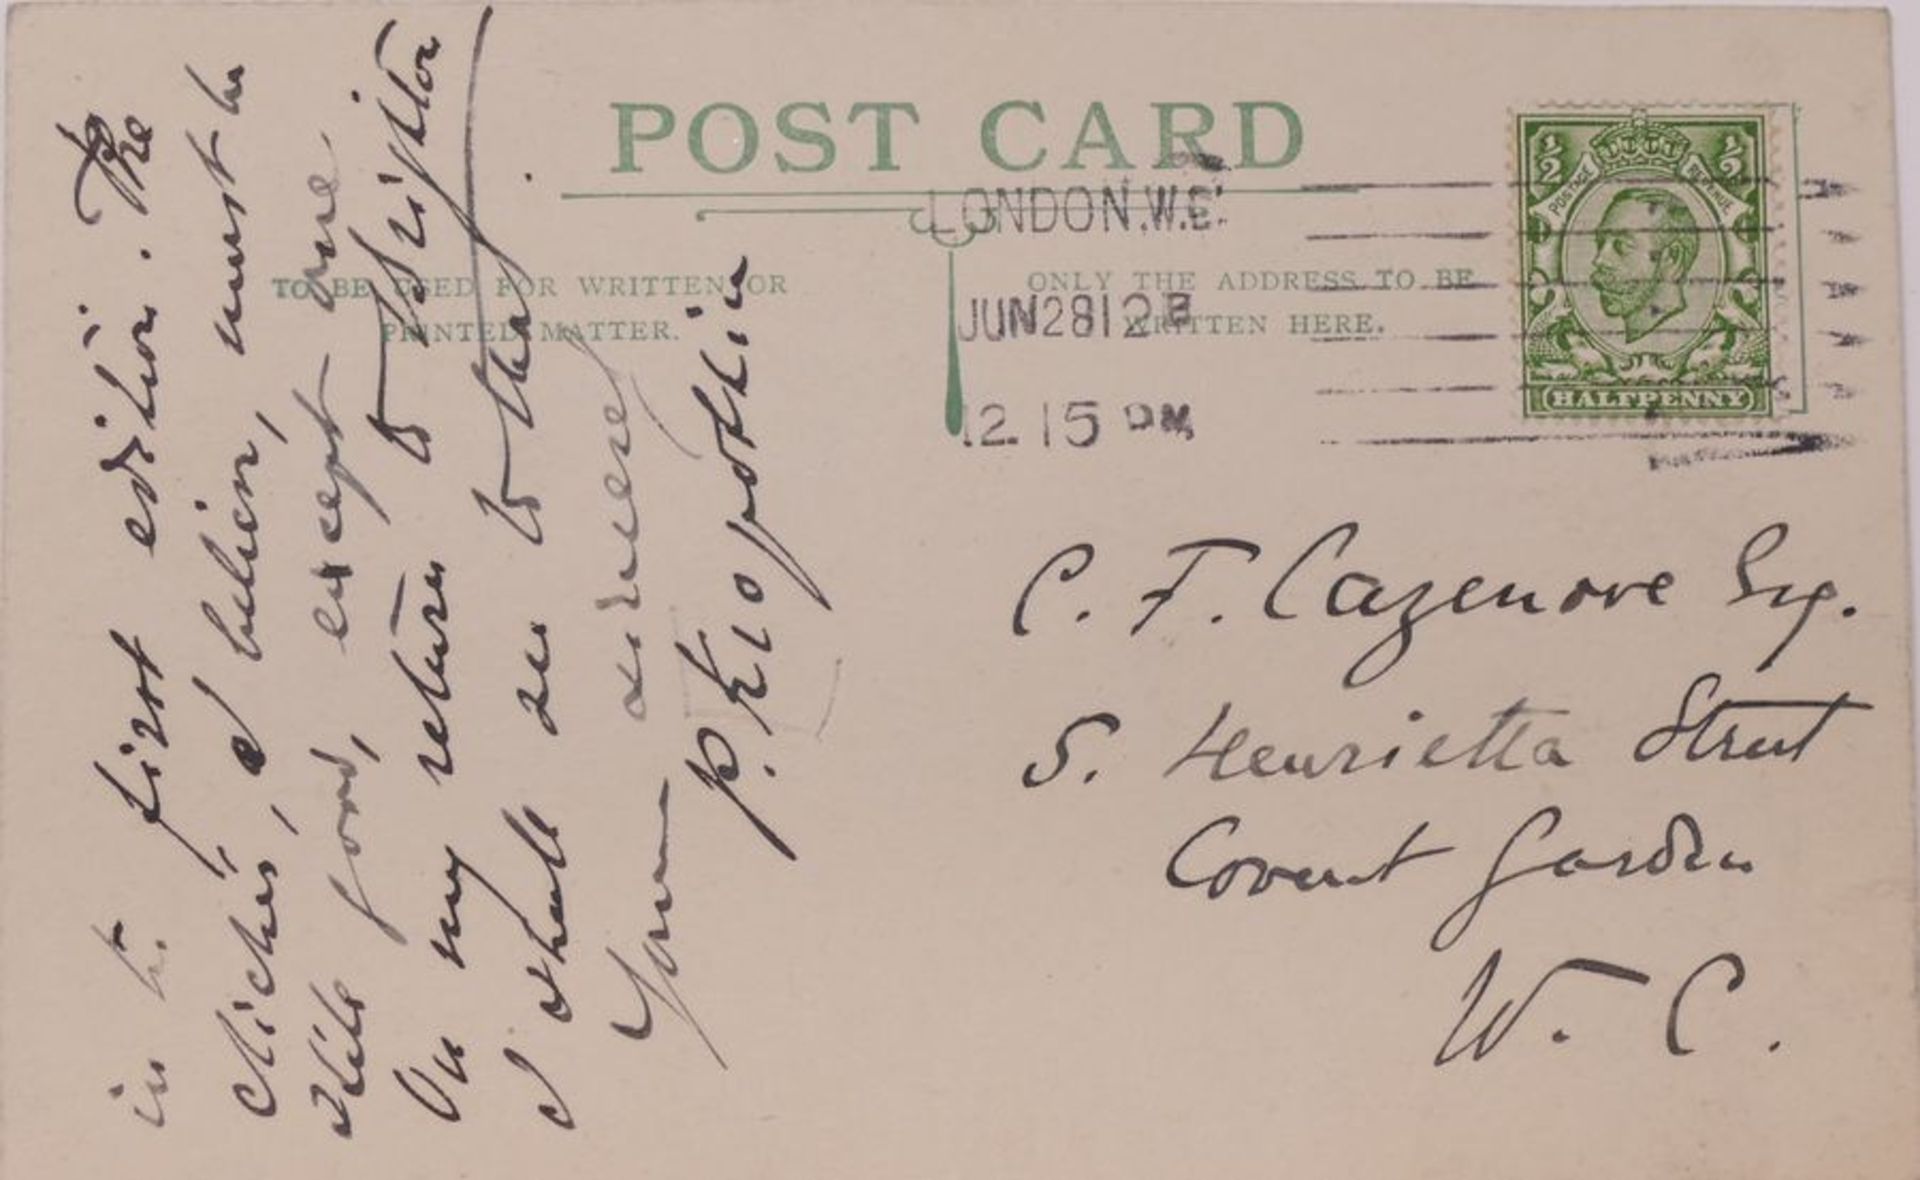 POST CARD
TO BE USED FOR WRITTEN OR
PRINTED MATTER.
ONLY THE ADDRESS TO BE
WRITTEN HERE.
LONDON.W.C.
JUN 28 12
12.15 PM
½ ½
POSTAGE REVENUE
HALFPENNY
in the first edition. The
clichés, I believe, must be
still good, except one.
On my return to Brighton
I shall see to that.
Yours sincerely
P. Kropotkin
C. F. Cazenove Esq.
5. Henrietta Street
Covent Garden
W. C.